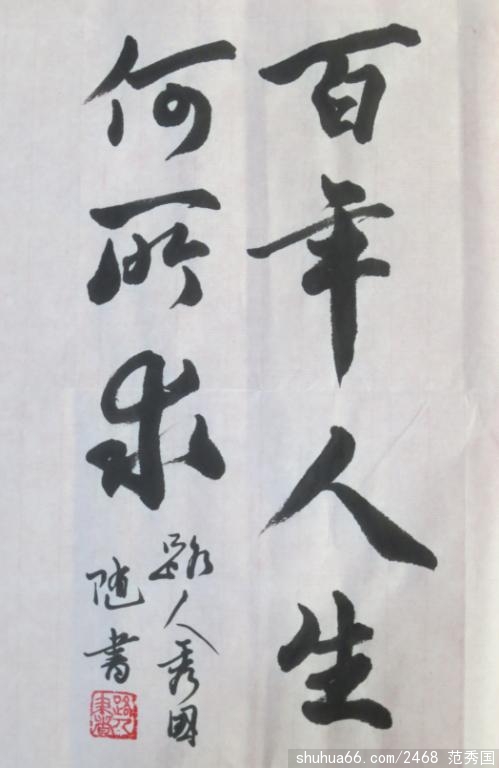 百年人生
何所求
路人秀国
随书
shuhua66.com/2468 范秀国